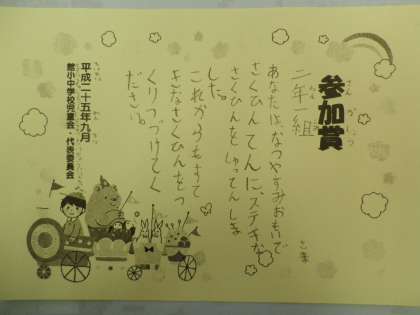 参加賞
さんかしょう
二年一組
さま
あなたは、なつやすみおもいで
さくひんてんに、ステキな
さくひんをしゅってんしま
した。
これからもすて
きなさくひんをつ
くりつづけてく
ださい。
平成二十五年九月
館小中学校児童会・代表委員会